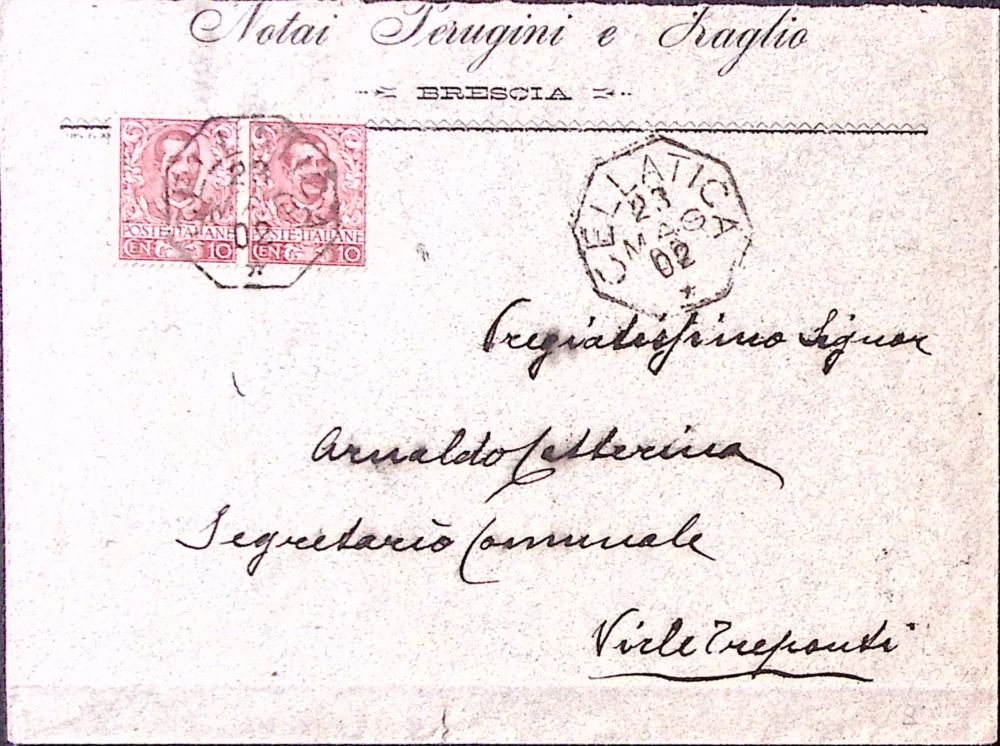 Notai Perugini e Fraglio
BRESCIA
POSTE·ITALIANE
CEN 10
POSTE·ITALIANE
CEN 10
02
CELLATICA
23 MAG
02
Pregiatissimo Signor
Arnaldo
Segretario Comunale
Virle Treponti